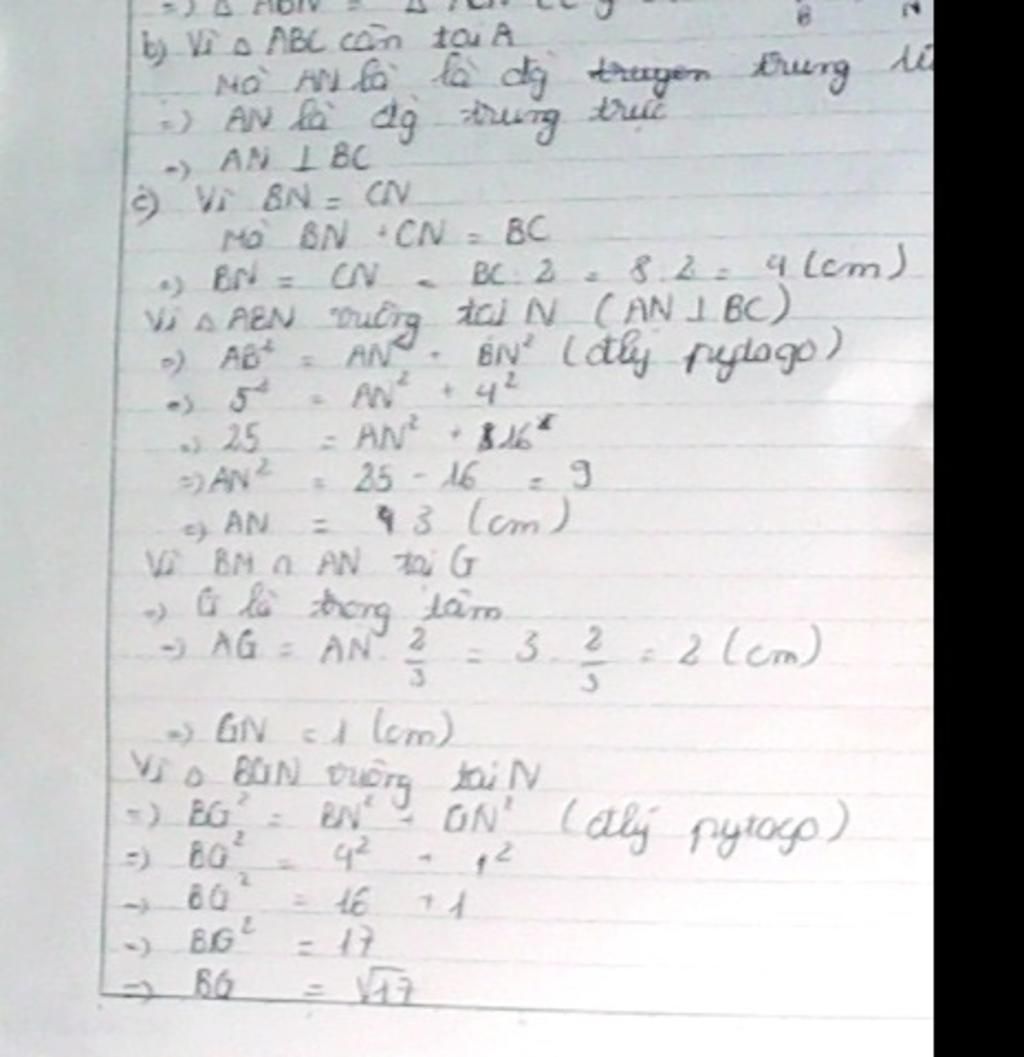 =) Δ ABN = Δ
B N
b) Vì Δ ABC cân tại A
Mà AN là là đg truyen trung
=) AN là đg trung trực
=) AN ⊥ BC
c) Vì BN = CN
Mà BN + CN = BC
=) BN = CN = BC : 2 = 8 : 2 = 4 (cm)
Vì Δ ABN vuông tại N (AN ⊥ BC)
=) AB² = AN² + BN² (đlý pytago)
=) 5² = AN² + 4²
=) 25 = AN² + 16
=) AN² = 25 - 16 = 9
=) AN = 3 (cm)
Vì BM ∩ AN tại G
=) G là trong tâm
=) AG = AN . 2/3 = 3 . 2/3 = 2 (cm)
=) GN = 1 (cm)
Vì Δ BGN vuông tại N
=) BG² = BN² + GN² (đlý pytago)
=) BG² = 4² + 1²
=) BG² = 16 + 1
=) BG² = 17
=) BG = √17